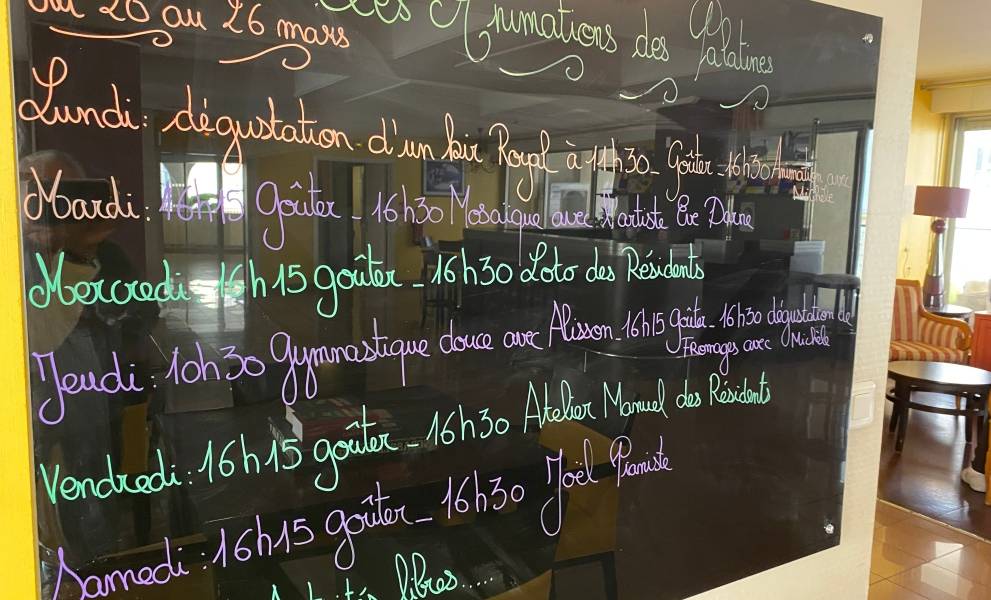 du 20 au 26 mars
Les Animations des Palatines
Lundi: dégustation d'un kir Royal à 11h30_ Goûter_16h30 Animation avec
Michèle
Mardi: 16h15 Goûter - 16h30 Mosaïque avec l'artiste Eve Darne
Mercredi: 16h15 goûter - 16h30 Loto des Résidents
Jeudi: 10h30 Gymnastique douce avec Alisson_16h15 Goûter_16h30 dégustation de
Fromages avec Michèle
Vendredi: 16h15 goûter - 16h30 Atelier Manuel des Résidents
Samedi: 16h15 goûter_ 16h30 Joël Pianiste
Activités libres.....